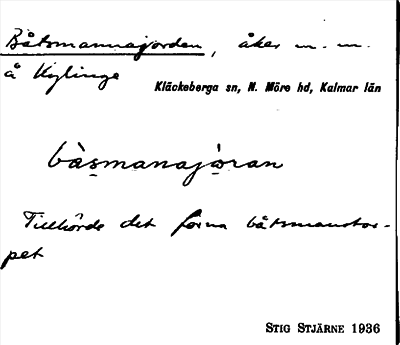 Båtsmannajorden, åker m. m.
å Kylinge
Kläckeberga sn, N. Möre hd, Kalmar län
bàsmanajòran
Tillhörde det forna båtsmanstor-
pet
STIG STJÄRNE 1936